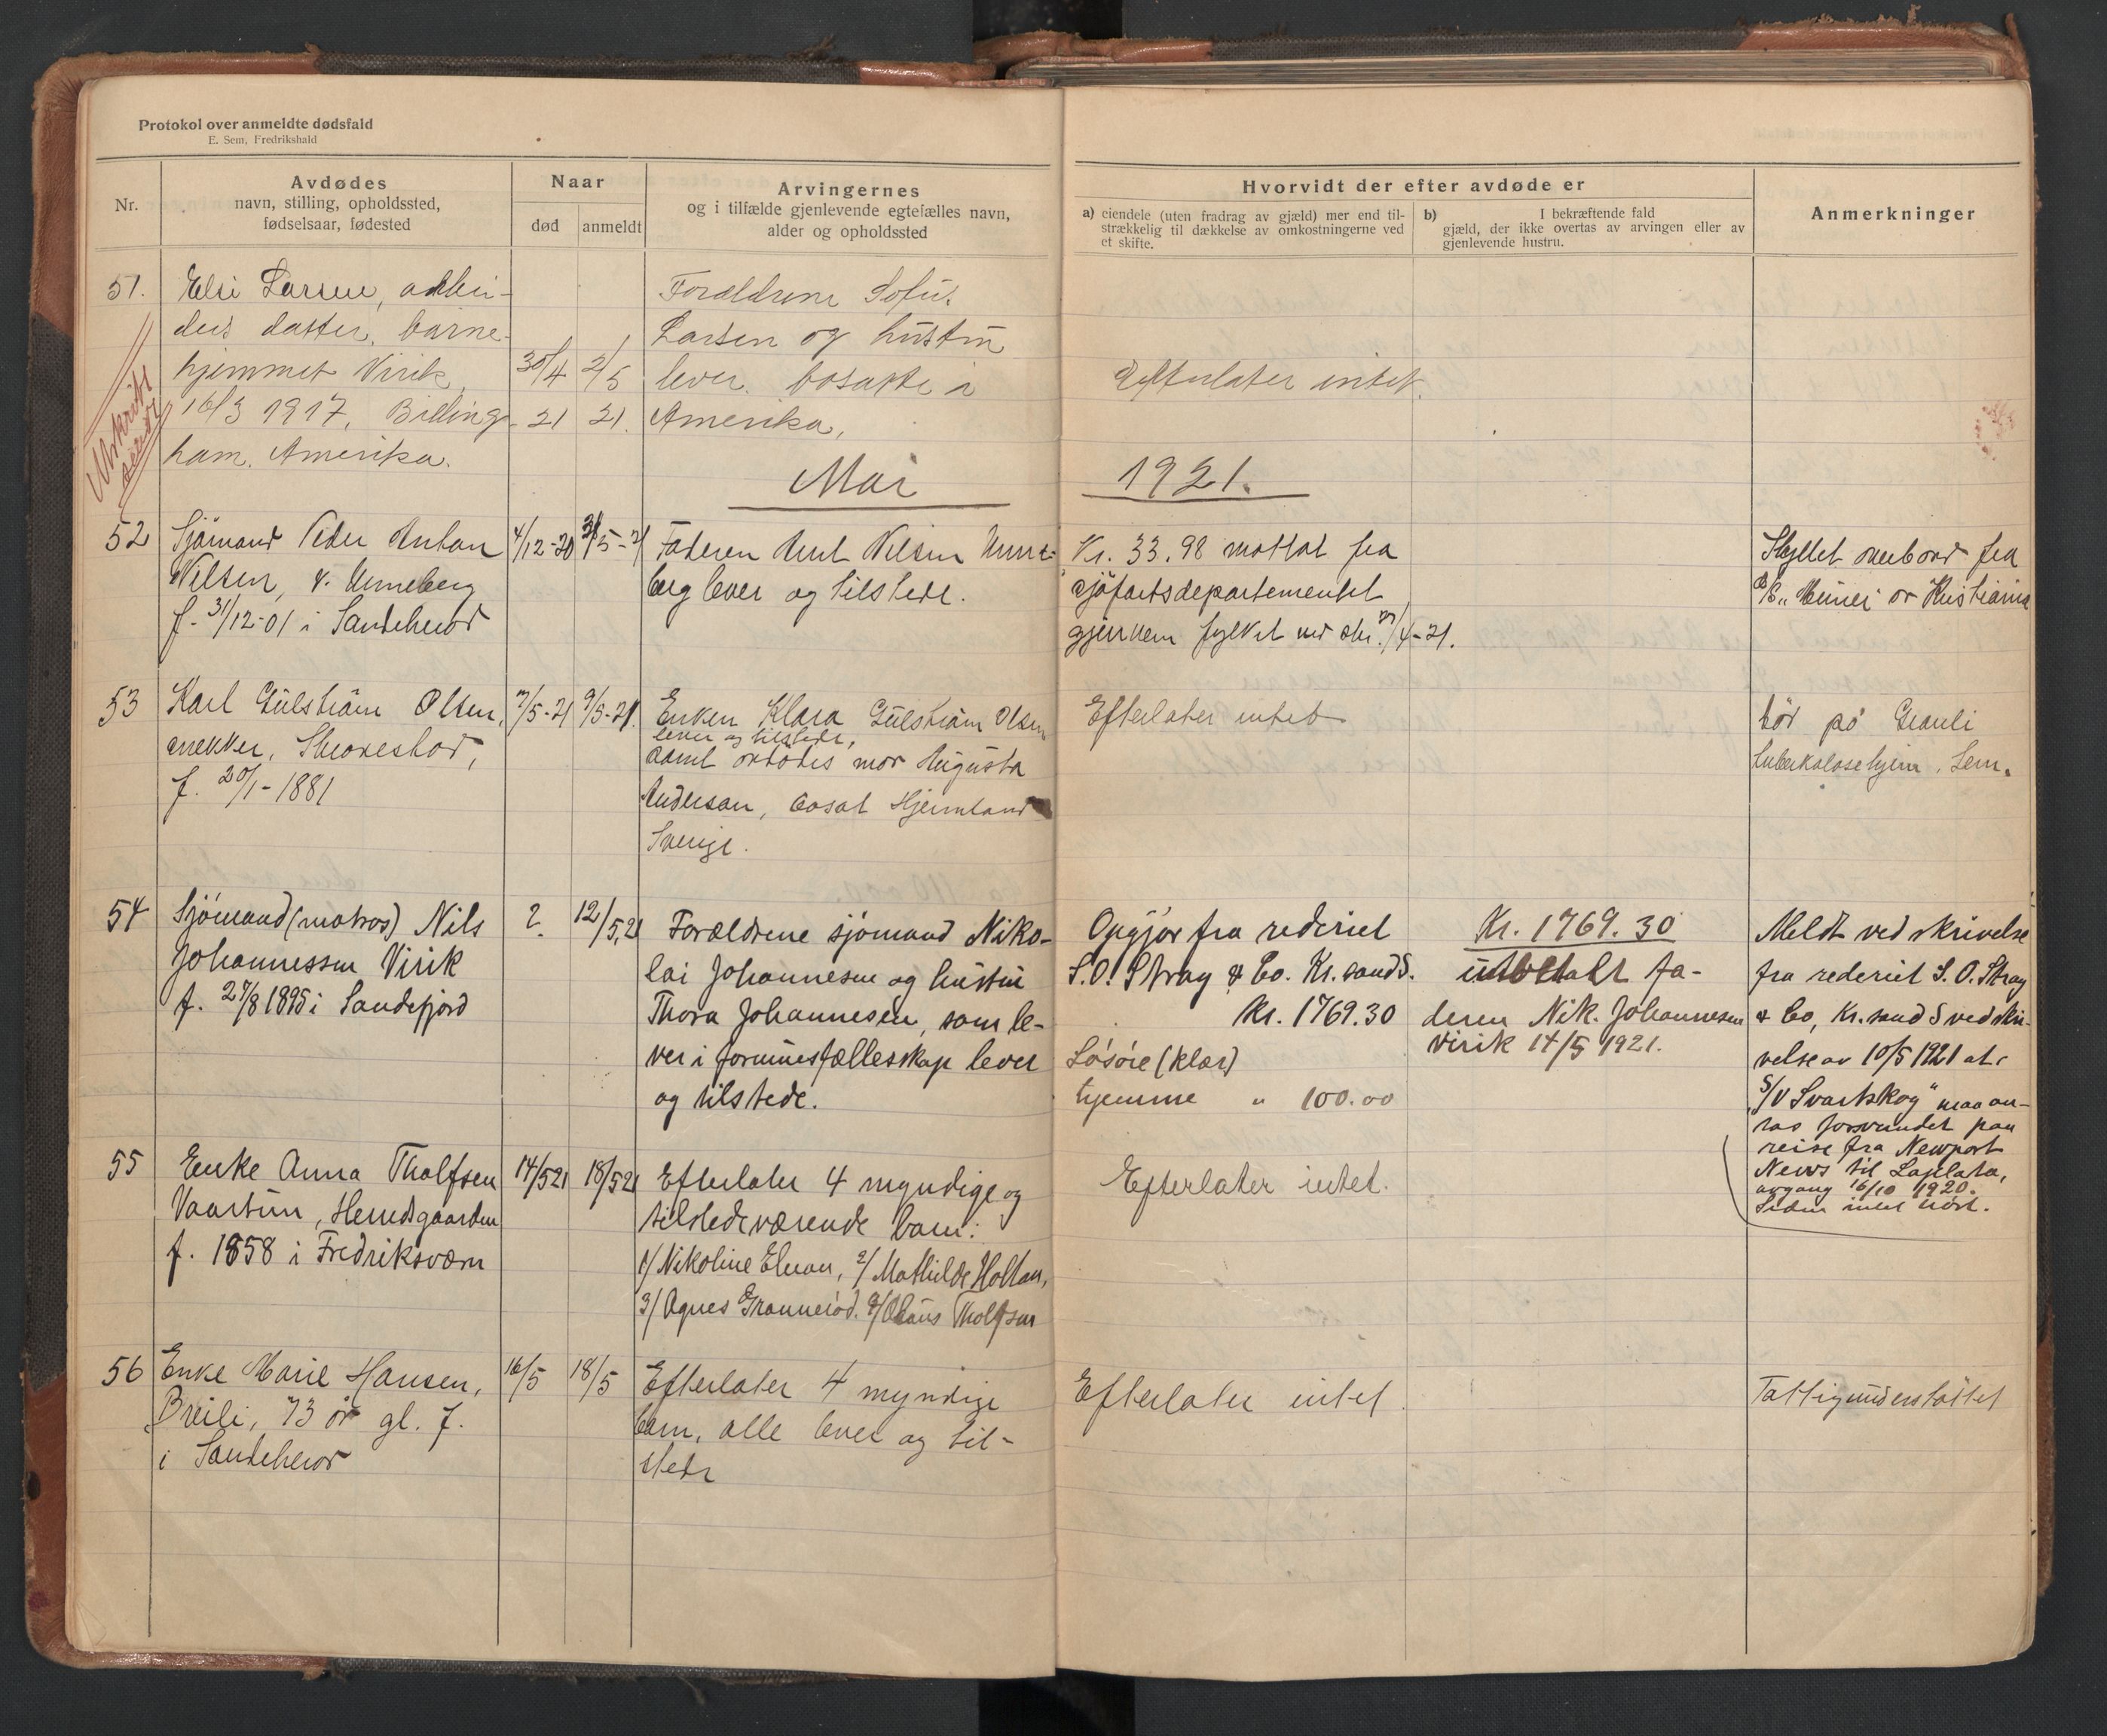 Protokol over anmeldte dødsfald
E. Sem, Fredrikshald
Nr.
Avdødes
navn, stilling, opholdssted,
fødselsaar, fødested
Naar
død
anmeldt
Arvingernes
og i tilfælde gjenlevende egtefælles navn,
alder og opholdssted
Hvorvidt der efter avdøde er
a) eiendele (uten fradrag av gjæld) mer end til-
strækkelig til dækkelse av omkostningerne ved
et skifte.
b) I bekræftende fald
gjæld, der ikke overtas av arvingen eller av
gjenlevende hustru.
Anmerkninger
51.
Utskrift
sendt
Elsi Larsen, arbei-
ders datter, barne-
hjemmet Virik,
16/3 1917, Billing-
ham. Amerika.
30/4
21
2/5
21.
Forældrene Sofus
Larsen og hustru
lever bosatte i
Amerika,
Efterlater intet.
Mai
1921.
52
Sjømand Peder Anton
Nilsen, v. Unneberg
f. 31/12-01 i Sandeherod
4/12-20
3/5-21
Faderen Ant Nilsen Unne-
berg lever og tilstede.
Kr. 33.98 mottat fra
sjøfartsdepartementet
gjennem fylket ved skr. /4-21.
Skyllet overbord fra
av Kristiania
53
Karl Gulstrøm Olsen,
snekker,
f. 20/1-1881
7/5-21
9/5-21.
Enken Klara Gulstrøm Olsen
lever og tilstede,
samt avdødes mor Augusta
Anderson, bosat Hjemland
Sverige.
Efterlater intet
død på Grauli
tuberkulosehjem, Sem.
54
Sjømand (matros) Nils
Johannessen Virik
f. 27/8 1895 i Sandefjord
?
12/5.21
Forældrene sjømand Niko-
lai Johannesen og hustru
Thora Johannesen, som le-
ver i formuesfællesskap lever
og tilstede.
Opgjør fra rederiet
S.O. Stray & Co. Kr.sand S.
Kr. 1769.30
Løsøre (klær)
hjemme " 100.00
Kr. 1769.30
utbetalt fa-
deren Nik. Johannesen
Virik 14/5 1921.
Meldt ved skrivelse
fra rederiet S.O. Stray
& Co, Kr.sand S ved skri-
velse av 10/5 1921 at
S/V Svartskog" maa an-
tas forsvundet paa
reise fra Newport
News til Laplata,
avgang 16/10 1920.
Siden intet hørt.
55
Enke Anna Tholfsen
Vaartun, Herredsgaarden
f. 1858 i Fredriksværn
14/5 21
18/5 21
Efterlater 4 myndige og
tilstedeværende barn:
1/ Nikoline Elvran, 2/ Mathilde Holtan,
3/ Agnes Granneiød. 4/ Olaus Tholfsen
Efterlater intet.
56
Enke Marie Hansen,
Breili, 73 år gl. f.
i Sandeherod
16/5
18/5
Efterlater 4 myndige
barn, alle lever og til-
stede
Efterlater intet.
Fattigunderstøttet